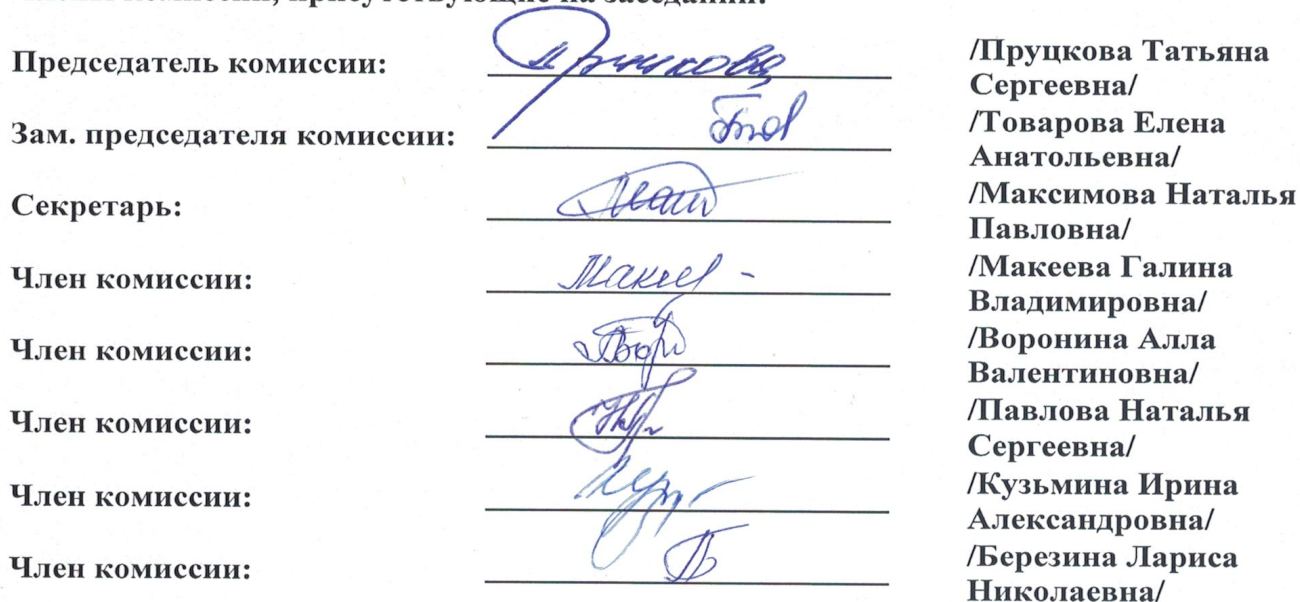 Члены комиссии, присутствующие на заседании:
Председатель комиссии: /Пруцкова Татьяна
Сергеевна/
Зам. председателя комиссии: /Товарова Елена
Анатольевна/
Секретарь: /Максимова Наталья
Павловна/
Член комиссии: Макеев /Макеева Галина
Владимировна/
Член комиссии: /Воронина Алла
Валентиновна/
Член комиссии: /Павлова Наталья
Сергеевна/
Член комиссии: /Кузьмина Ирина
Александровна/
Член комиссии: /Березина Лариса
Николаевна/